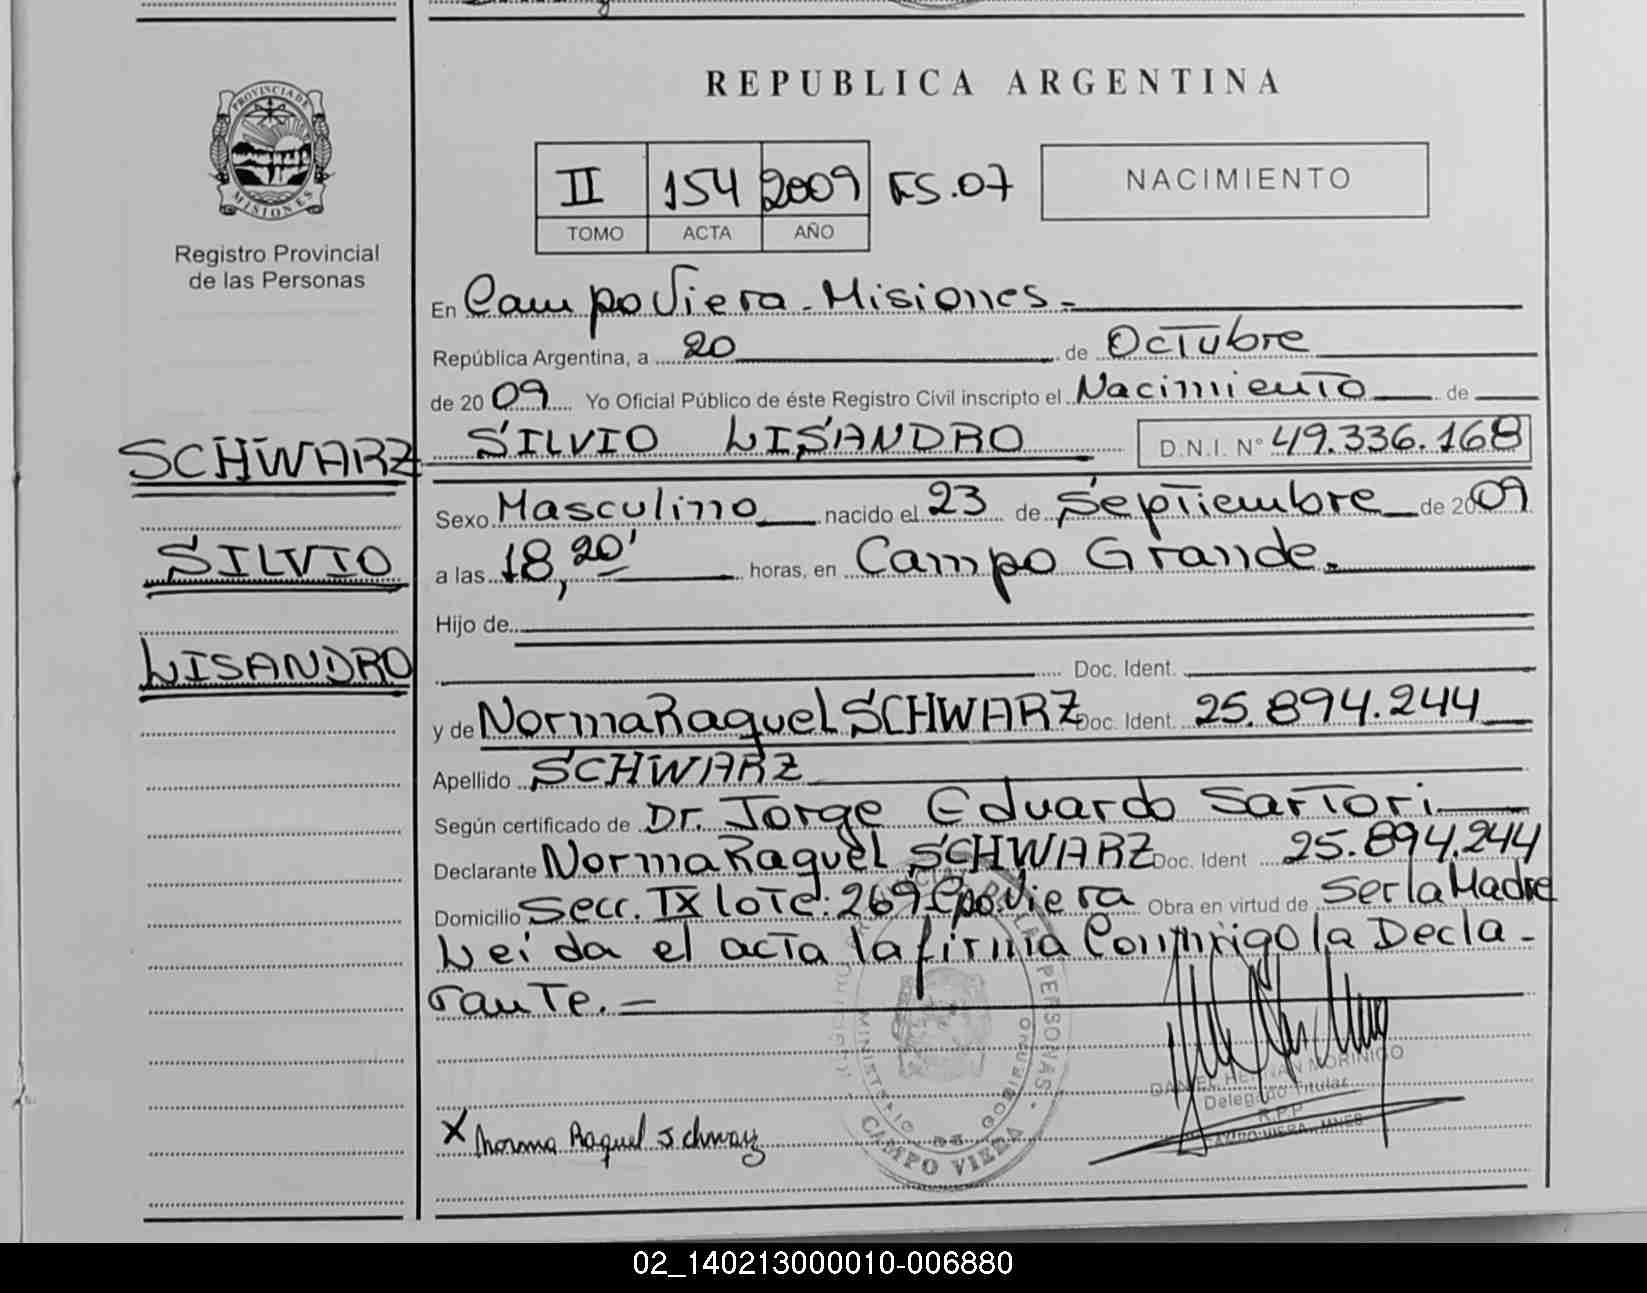 REPUBLICA ARGENTINA
PROVINCIA DE
MISIONES
Registro Provincial
de las Personas
II 154 2009 FS.07
TOMO ACTA AÑO
NACIMIENTO
En Campo Viera - Misiones.-
República Argentina, a 20 de Octubre
de 2009 Yo Oficial Público de éste Registro Civil inscripto el Nacimiento de
SCHWARZ
SILVIO
LISANDRO
SILVIO LISANDRO D.N.I. N° 49.336.168
Sexo Masculino nacido el 23 de Septiembre de 2009
a las 18,20' horas, en Campo Grande.
Hijo de
Doc. Ident.
y de Norma Raquel SCHWARZ Doc. Ident. 25.894.244
Apellido SCHWARZ
Según certificado de Dr. Jorge Eduardo Sartori
Declarante Norma Raquel SCHWARZ Doc. Ident 25.894.244
Domicilio Secc. IX lote: 269 Cpo. Viera Obra en virtud de Ser la Madre
Leida el acta la firma Conmigo la Decla-
rante.-
DANIEL HERNAN MORINIGO
Delegado Titular
R.P.P.
CAMPO VIERA - MNES
X Norma Raquel Schwarz
CAMPO VIERA
02_140213000010-006880